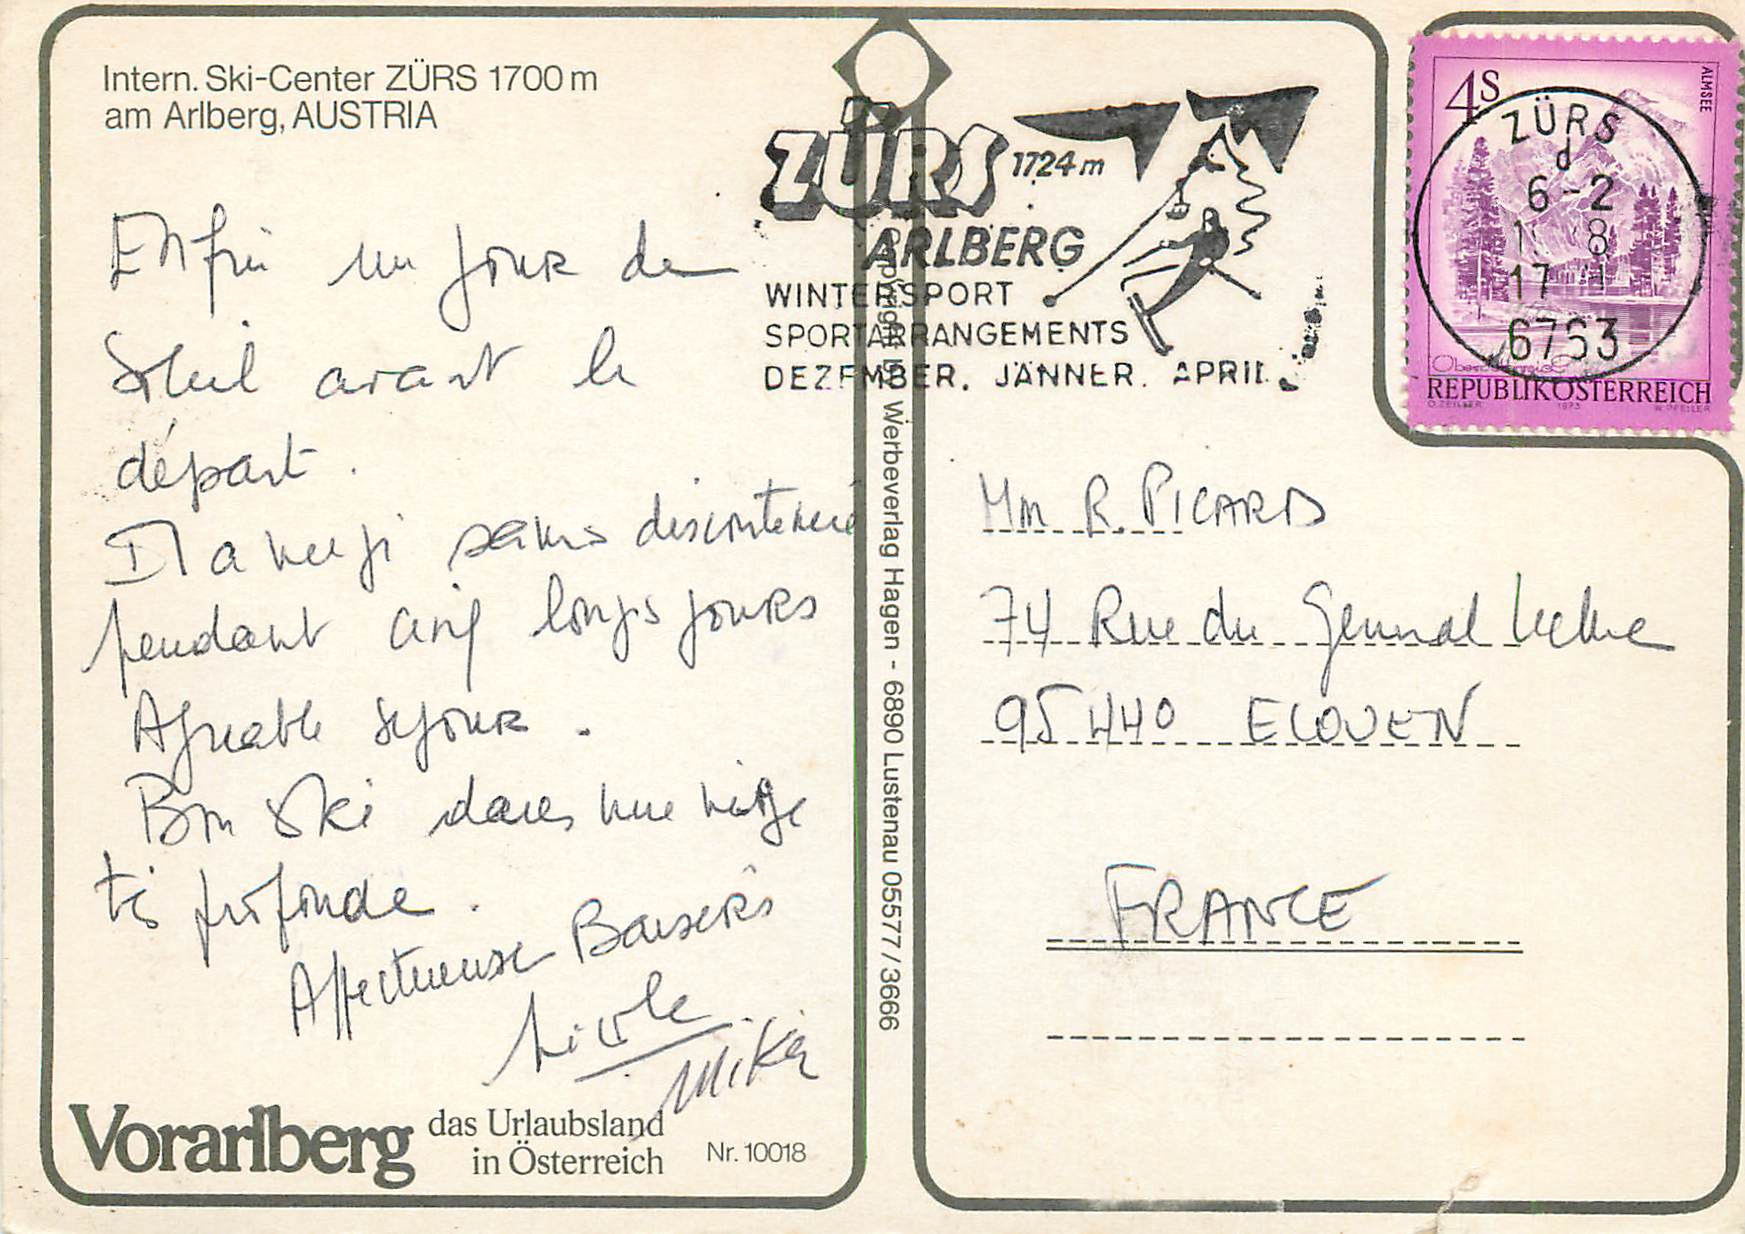 Intern. Ski-Center ZÜRS 1700 m
am Arlberg, AUSTRIA
Enfin un jour de
Soleil avant le
départ.
Il a neigé sans discontinué
pendant cinq longs jours
Agréable séjour.
Bon Ski dans une neige
très profonde.
Affectueuse Baisers
Nicole
Mika
Vorarlberg das Urlaubsland
in Österreich
Nr. 10018
Copyright by Werbeverlag Hagen - 6890 Lustenau 05577/3666
ZÜRS 1724 m
ARLBERG
WINTERSPORT
SPORTARRANGEMENTS
DEZEMBER. JÄNNER. APRIL
4S
ALMSEE
REPUBLIK ÖSTERREICH
O. ZEILLER 1973 W. PFEILER
ZÜRS
d
6-2
8
17
6763
Mm R. PICARD
74 Rue du General Leclerc
95440 ECOUEN
FRANCE